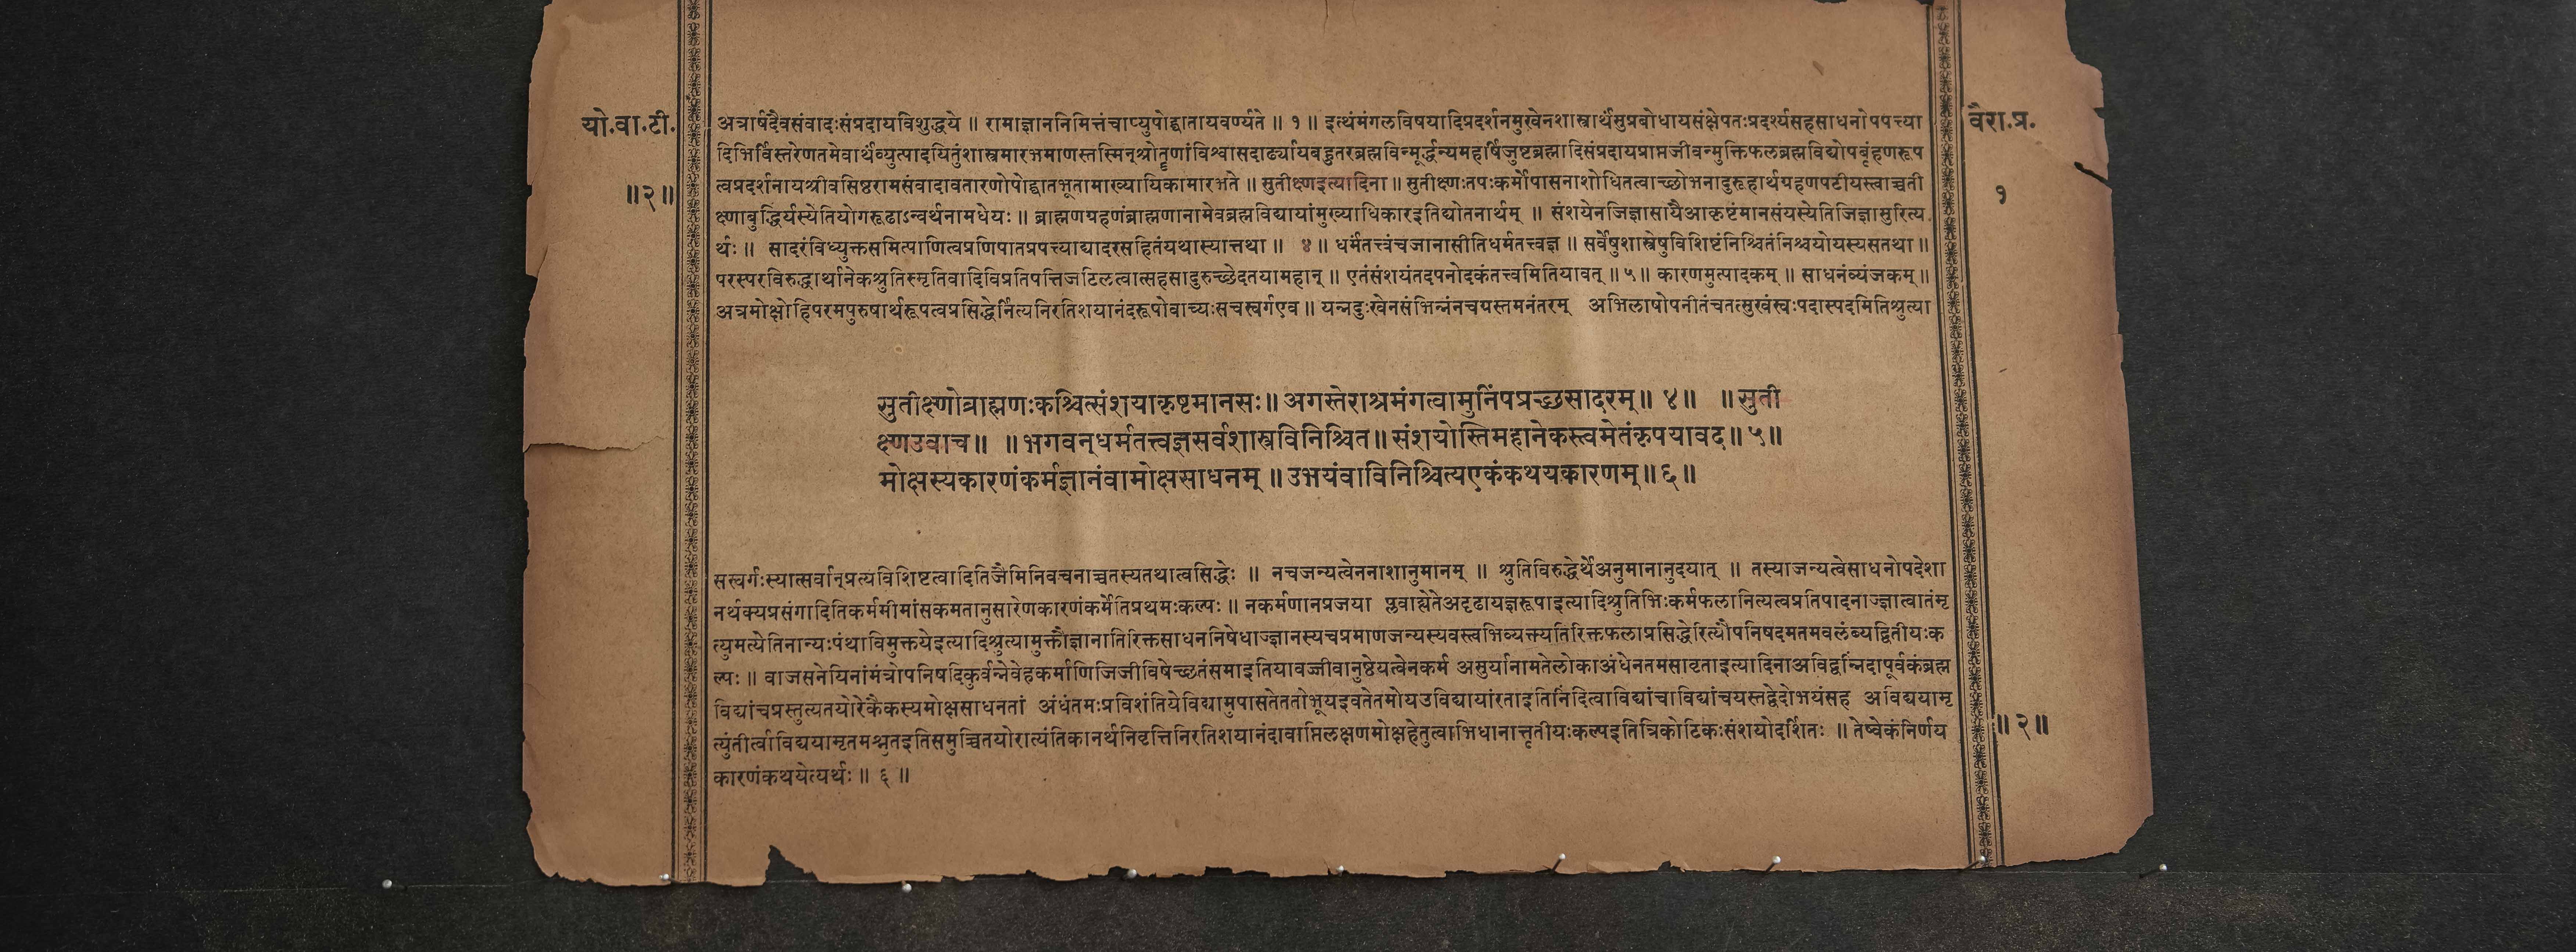 यो.वा.टी.
॥२॥
अत्रार्षदैवसंवादःसंप्रदायविशुद्धये ॥ रामाज्ञाननिमित्तंचाप्युपोद्घातायवर्ण्यते ॥ १ ॥ इत्थंमंगलविषयादिप्रदर्शनमुखेनशास्त्रार्थंसुप्रबोधायसंक्षेपतःप्रदर्श्यसहसाधनोपपत्त्या
दिभिर्विस्तरेणतमेवार्थंव्युत्पादयितुंशास्त्रमारभमाणस्तस्मिन्श्रोतॄणांविश्वासदार्ढ्यायबहुतरब्रह्मविन्मूर्द्धन्यमहर्षिजुष्टब्रह्मादिसंप्रदायप्राप्तजीवन्मुक्तिफलब्रह्मविद्योपबृंहणरूप
त्वप्रदर्शनायश्रीवसिष्ठरामसंवादावतारणोपोद्घातभूतामाख्यायिकामारभते ॥ सुतीक्ष्णइत्यादिना ॥ सुतीक्ष्णःतपःकर्मोपासनाशोधितत्वाच्छोभनादुरूहार्थग्रहणपटीयस्त्वाच्चती
क्ष्णाबुद्धिर्यस्येतियोगरूढाऽन्वर्थनामधेयः ॥ ब्राह्मणग्रहणंब्राह्मणानामेवब्रह्मविद्यायांमुख्याधिकारइतिद्योतनार्थम् ॥ संशयेनजिज्ञासायैआकृष्टंमानसंयस्येतिजिज्ञासुरित्य
र्थः ॥ सादरंविध्युक्तसमित्पाणित्वप्रणिपातप्रपत्त्याद्यादरसहितंयथास्यात्तथा ॥ ४ ॥ धर्मतत्त्वंचजानासीतिधर्मतत्त्वज्ञ ॥ सर्वेषुशास्त्रेषुविशिष्टंनिश्चितंनिश्चयोयस्यसतथा ॥
परस्परविरुद्धार्थानेकश्रुतिस्मृतिवादिविप्रतिपत्तिजटिलत्वात्सहसादुरुच्छेदतयामहान् ॥ एतंसंशयंतदपनोदकंतत्त्वमितियावत् ॥ ५ ॥ कारणमुत्पादकम् ॥ साधनंव्यंजकम् ॥
अत्रमोक्षोहिपरमपुरुषार्थरूपत्वप्रसिद्धेर्नित्यनिरतिशयानंदरूपोवाच्यःसचस्वर्गएव ॥ यन्नदुःखेनसंभिन्नंनचग्रस्तमनंतरम् अभिलाषोपनीतंचतत्सुखंस्वःपदास्पदमितिश्रुत्या
सुतीक्ष्णोब्राह्मणःकश्चित्संशयाकृष्टमानसः ॥ अगस्तेराश्रमंगत्वामुनिंपप्रच्छसादरम् ॥ ४ ॥ ॥ सुती
क्ष्णउवाच ॥ ॥ भगवन्धर्मतत्त्वज्ञसर्वशास्त्रविनिश्चित ॥ संशयोस्तिमहानेकस्त्वमेतंकृपयावद ॥ ५ ॥
मोक्षस्यकारणंकर्मज्ञानंवामोक्षसाधनम् ॥ उभयंवाविनिश्चित्यएकंकथयकारणम् ॥ ६ ॥
सस्वर्गःस्यात्सर्वान्प्रत्यविशिष्टत्वादितिजैमिनिवचनाच्चतस्यतथात्वसिद्धेः ॥ नचजन्यत्वेननाशानुमानम् ॥ श्रुतिविरुद्धेर्थेअनुमानानुदयात् ॥ तस्याजन्यत्वेसाधनोपदेशा
नर्थक्यप्रसंगादितिकर्ममीमांसकमतानुसारेणकारणंकर्मेतिप्रथमःकल्पः ॥ नकर्मणानप्रजया प्लवाह्येतेअदृढायज्ञरूपाइत्यादिश्रुतिभिःकर्मफलानित्यत्वप्रतिपादनाज्ज्ञात्वातंमृ
त्युमत्येतिनान्यःपंथाविमुक्तयेइत्यादिश्रुत्यामुक्तौज्ञानातिरिक्तसाधननिषेधाज्ज्ञानस्यचप्रमाणजन्यस्यवस्त्वभिव्यक्त्यतिरिक्तफलाप्रसिद्धेरित्यौपनिषदमतमवलंब्यद्वितीयःक
ल्पः ॥ वाजसनेयिनांमंत्रोपनिषदिकुर्वन्नेवेहकर्माणिजिजीविषेच्छतंसमाइतियावज्जीवानुष्ठेयत्वेनकर्म असुर्यानामतेलोकाअंधेनतमसावृताइत्यादिनाअविद्वन्निंदापूर्वकंब्रह्म
विद्यांचप्रस्तुत्यतयोरेकैकस्यमोक्षसाधनतां अंधंतमःप्रविशंतियेविद्यामुपासतेततोभूयइवतेतमोयउविद्यायांरताइतिनिंदित्वाविद्यांचाविद्यांचयस्तद्वेदोभयंसह अविद्ययामृ
त्युंतीर्त्वाविद्ययामृतमश्नुतइतिसमुच्चितयोरात्यंतिकानर्थनिवृत्तिनिरतिशयानंदावाप्तिलक्षणमोक्षहेतुत्वाभिधानात्तृतीयःकल्पइतित्रिकोटिकःसंशयोदर्शितः ॥ तेष्वेकंनिर्णय
कारणंकथयेत्यर्थः ॥ ६ ॥
वैरा.प्र.
१
॥ २ ॥